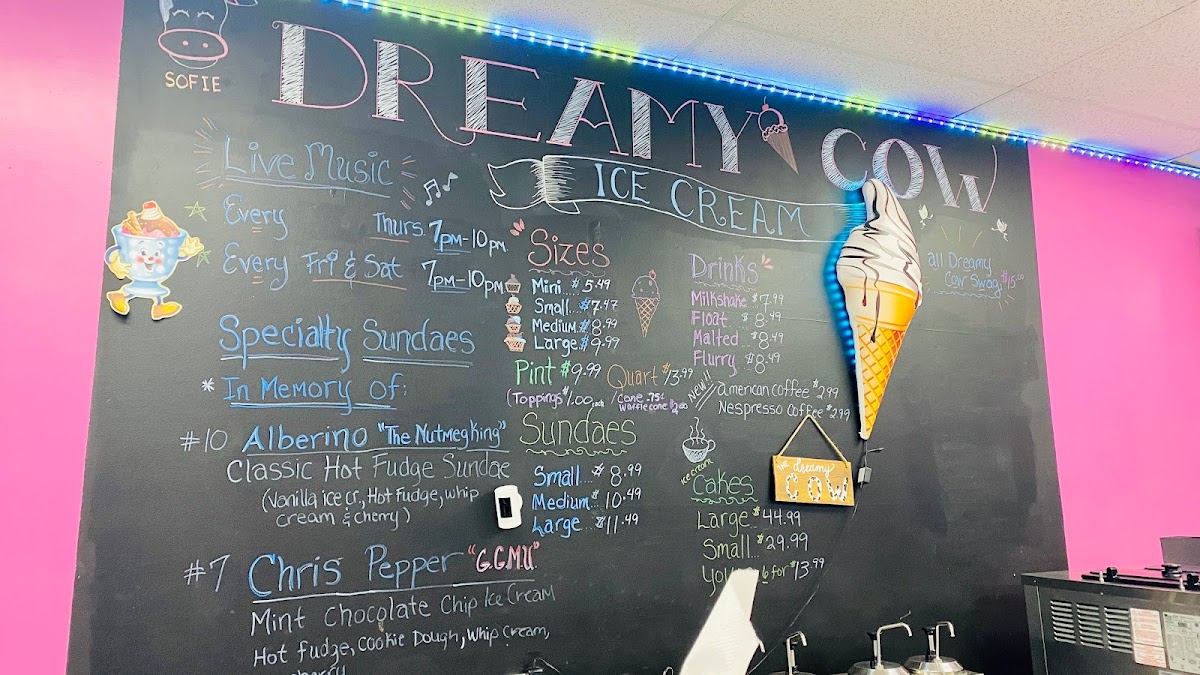 SOFIE
DREAMY COW
ICE CREAM
Live Music
Every Thurs. 7pm-10pm
Every Fri & Sat 7pm-10pm
Specialty Sundaes
* In Memory of:
#10 Alberino "The Nutmeg King"
Classic Hot Fudge Sundae
(Vanilla ice cr., Hot Fudge, whip
cream & cherry)
#7 Chris Pepper "G.C.M.U."
Mint Chocolate Chip Ice Cream
Hot fudge, Cookie Dough, Whip Cream,
Sizes
Mini $5.49
Small...$7.47
Medium.$8.99
Large.$9.99
Pint $9.99 Quart $13.99
(Toppings $1.00 each / Cone .75¢
Waffle cone $2.00
Sundaes
Small...$8.99
Medium..$10.49
Large...$11.49
Drinks
Milkshake $7.99
Float $8.49
Malted..$8.49
Flurry $8.49
NEW!! american coffee $2.99
Nespresso Coffee $2.99
ice cream
Cakes
Large..$44.99
Small...$29.99
6 for $13.99
all Dreamy
Cow Swag $15.00
the dreamy
COW